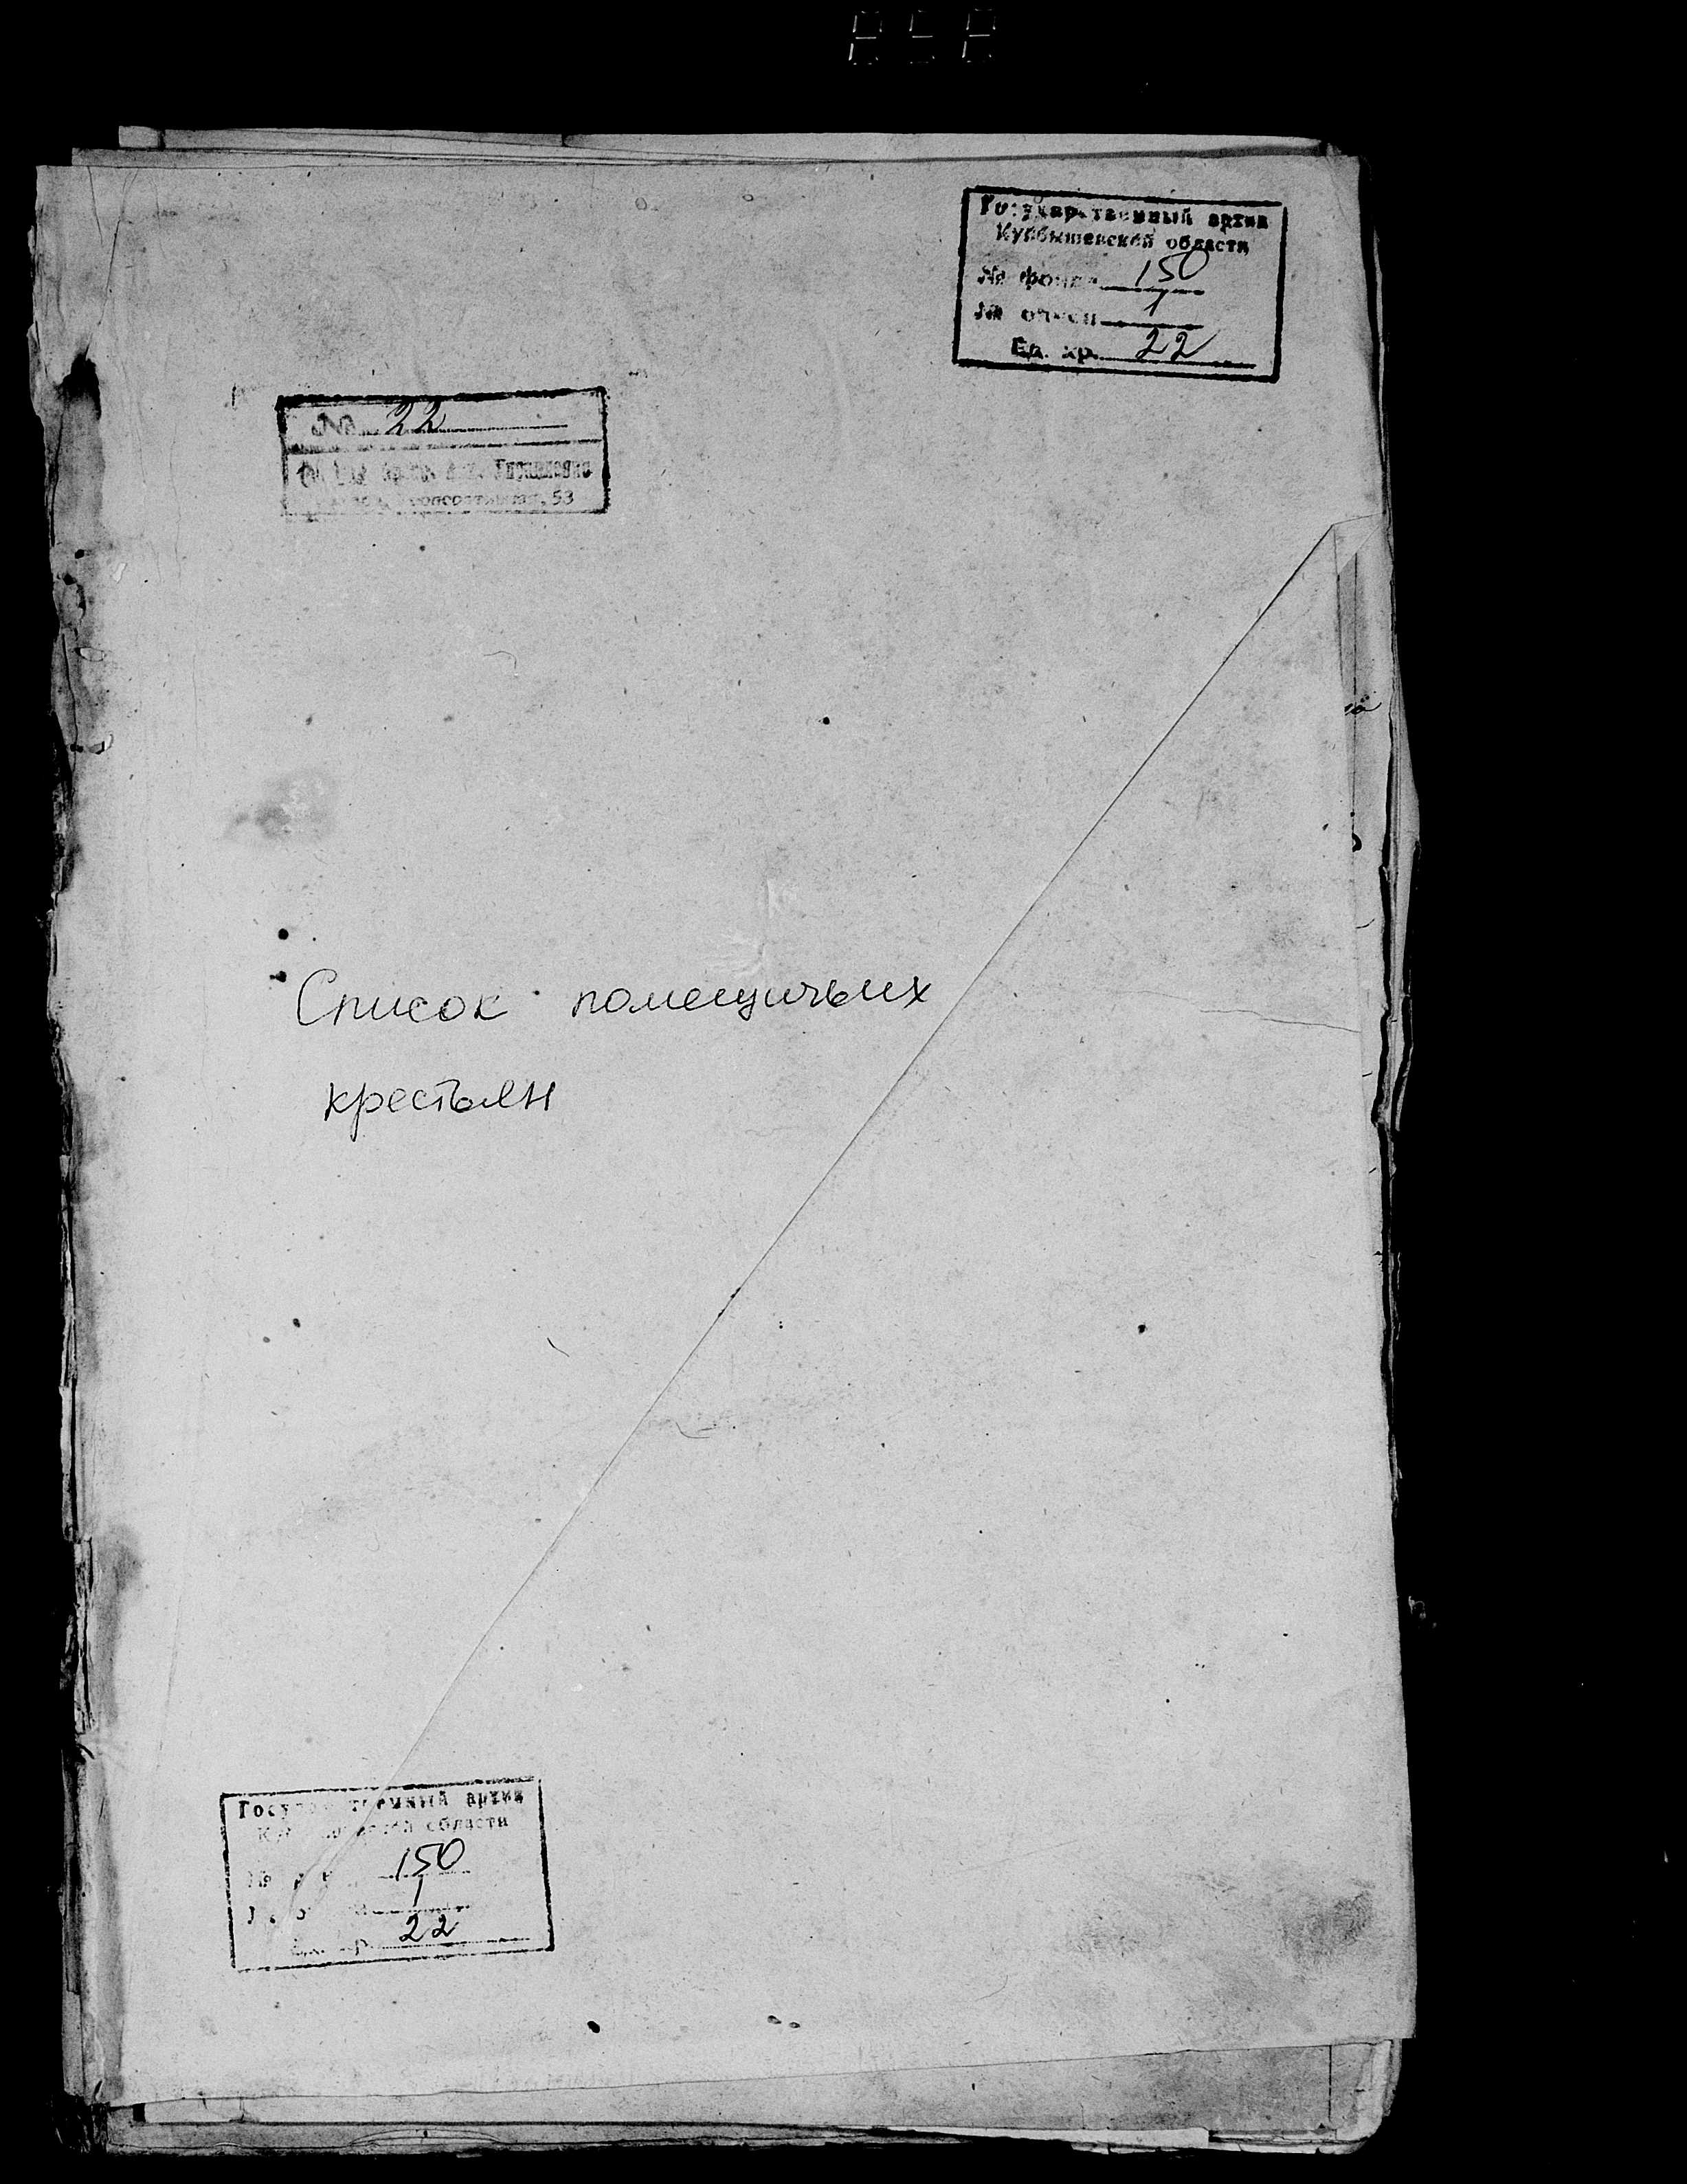 Государственный архив
Куйбышевской области
№ фонда 150
№ описи 1
Ед. хр. 22
№ 22
53
Список помещичьих
крестьян
Государственный архив
Куйбышевской области
150
1
22